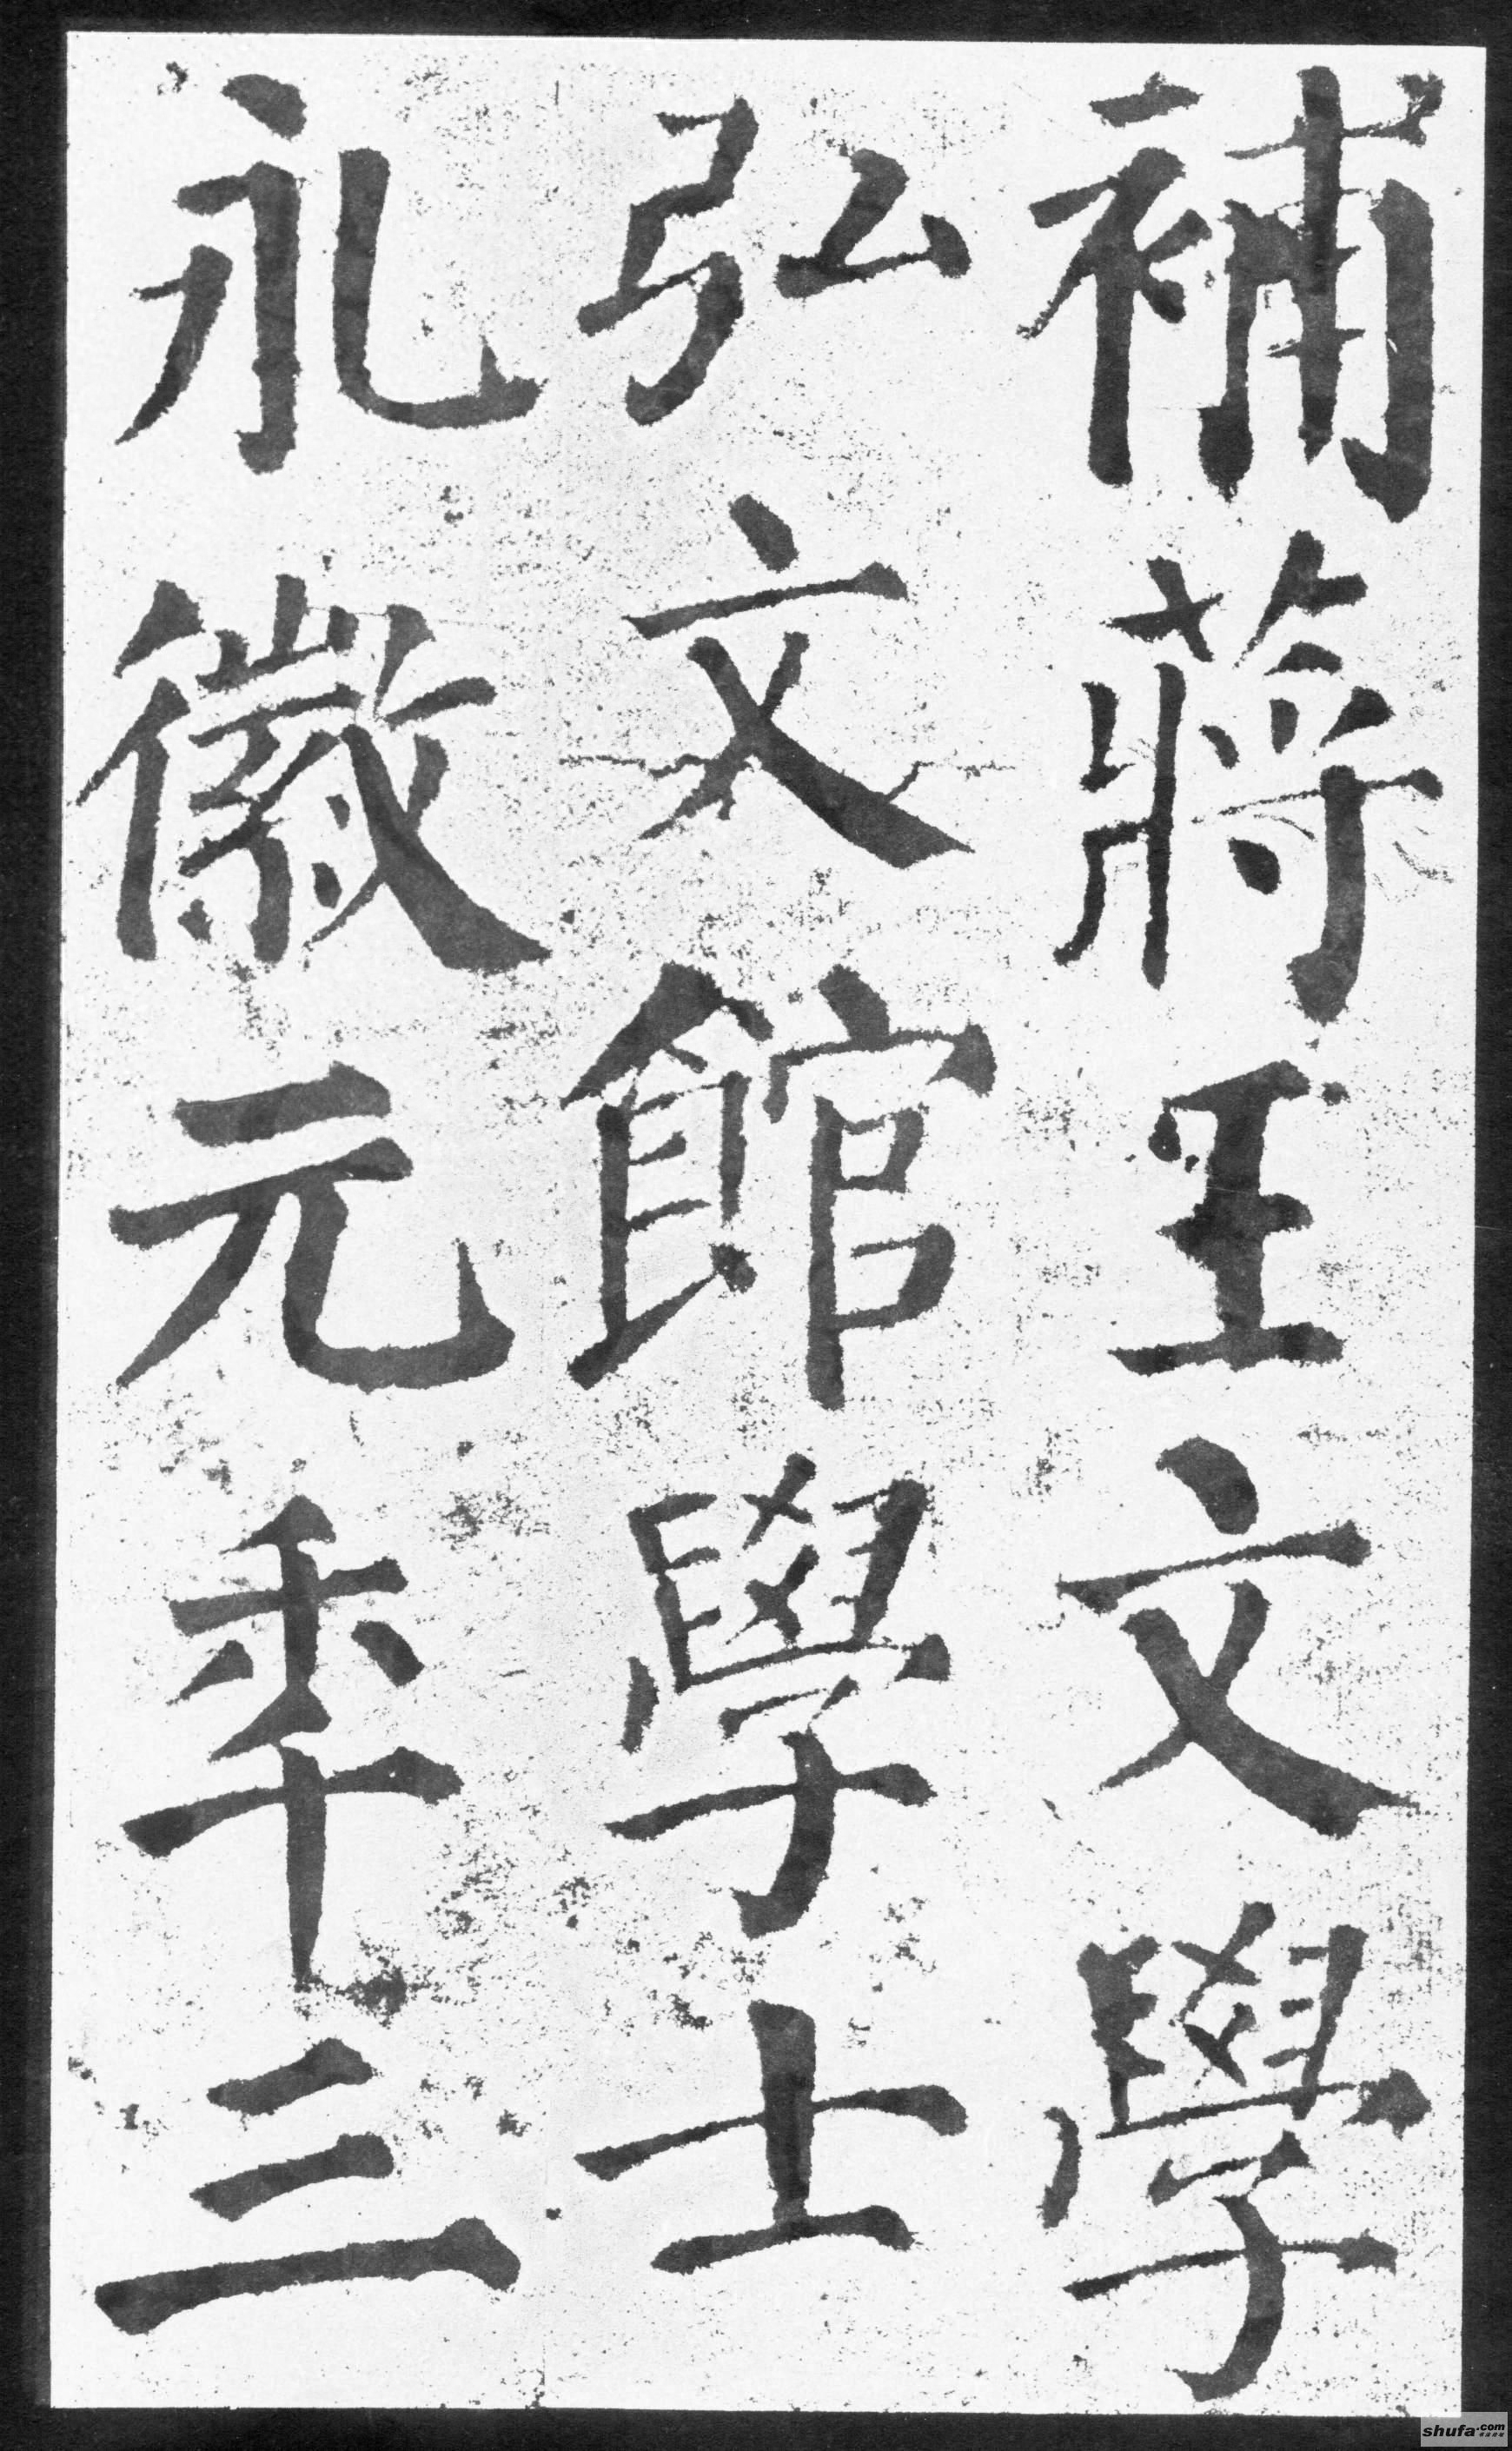 補蔣王文學
弘文館學士
永徽元季三
shufa.com